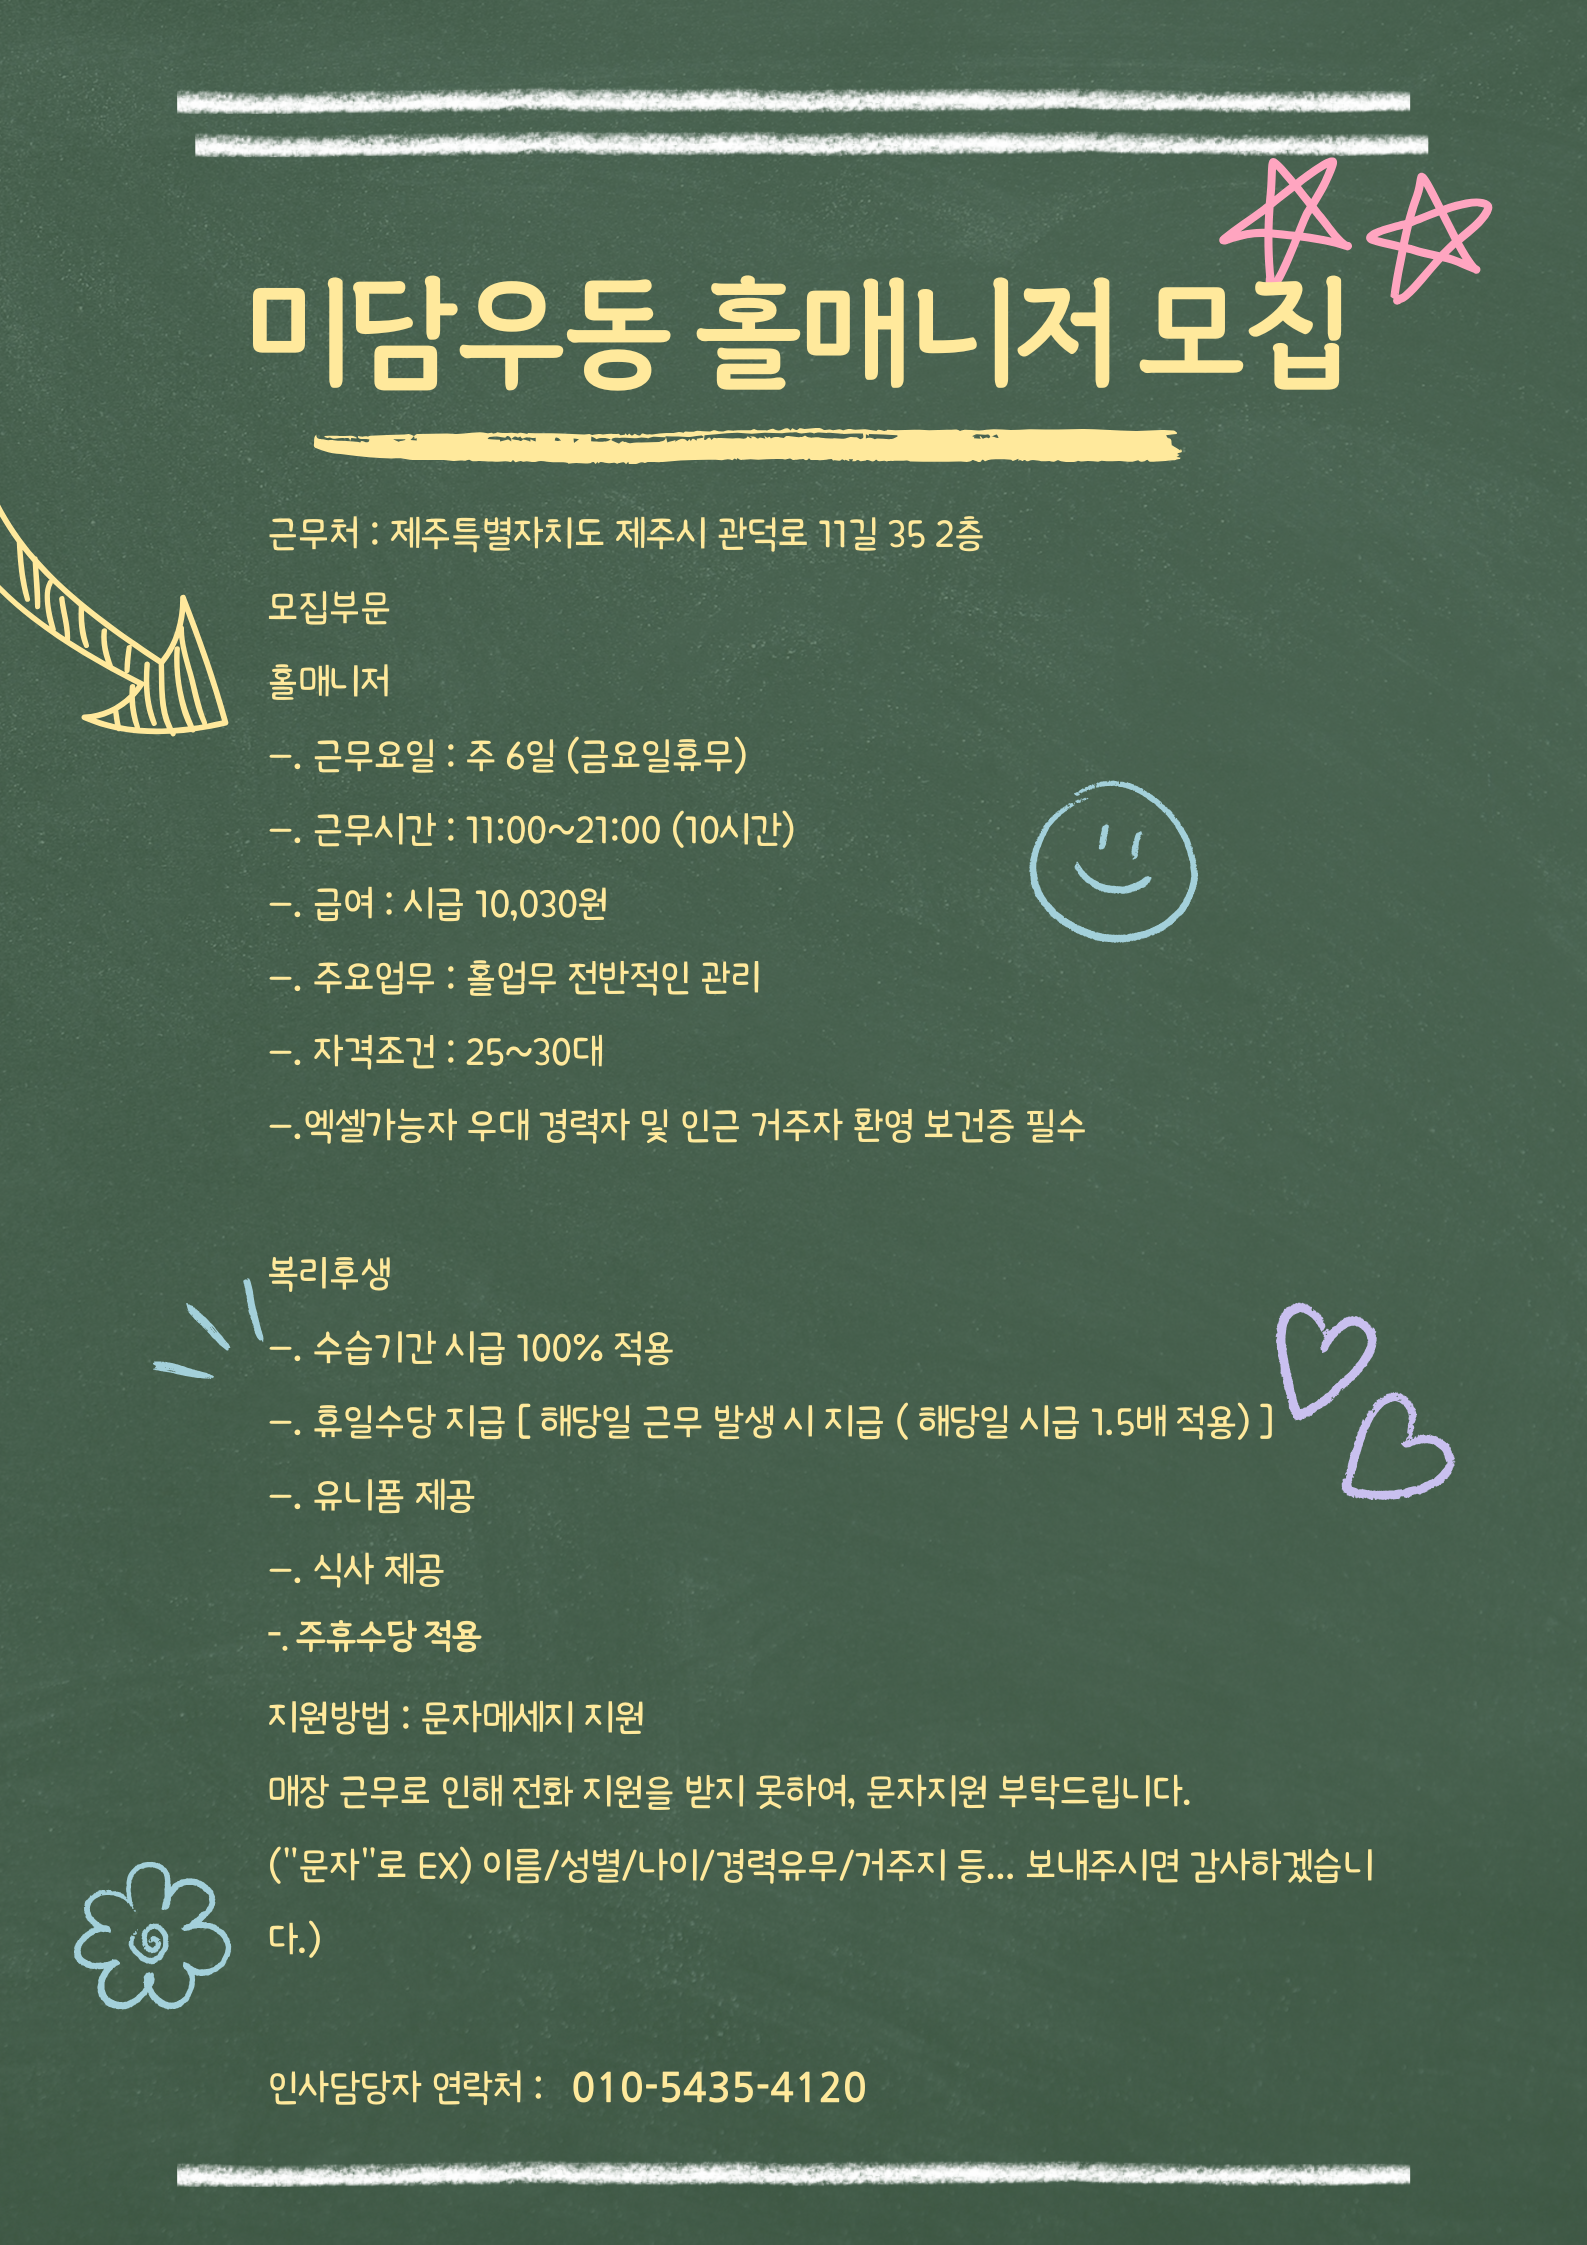 미담우동 홀매니저 모집
근무처 : 제주특별자치도 제주시 관덕로 11길 35 2층
모집부문
홀매니저
–. 근무요일 : 주 6일 (금요일휴무)
–. 근무시간 : 11:00~21:00 (10시간)
–. 급여 : 시급 10,030원
–. 주요업무 : 홀업무 전반적인 관리
–. 자격조건 : 25~30대
–.엑셀가능자 우대 경력자 및 인근 거주자 환영 보건증 필수
복리후생
–. 수습기간 시급 100% 적용
–. 휴일수당 지급 [ 해당일 근무 발생 시 지급 ( 해당일 시급 1.5배 적용) ]
–. 유니폼 제공
–. 식사 제공
-. 주휴수당 적용
지원방법 : 문자메세지 지원
매장 근무로 인해 전화 지원을 받지 못하여, 문자지원 부탁드립니다.
("문자"로 EX) 이름/성별/나이/경력유무/거주지 등... 보내주시면 감사하겠습니
다.)
인사담당자 연락처 : 010-5435-4120